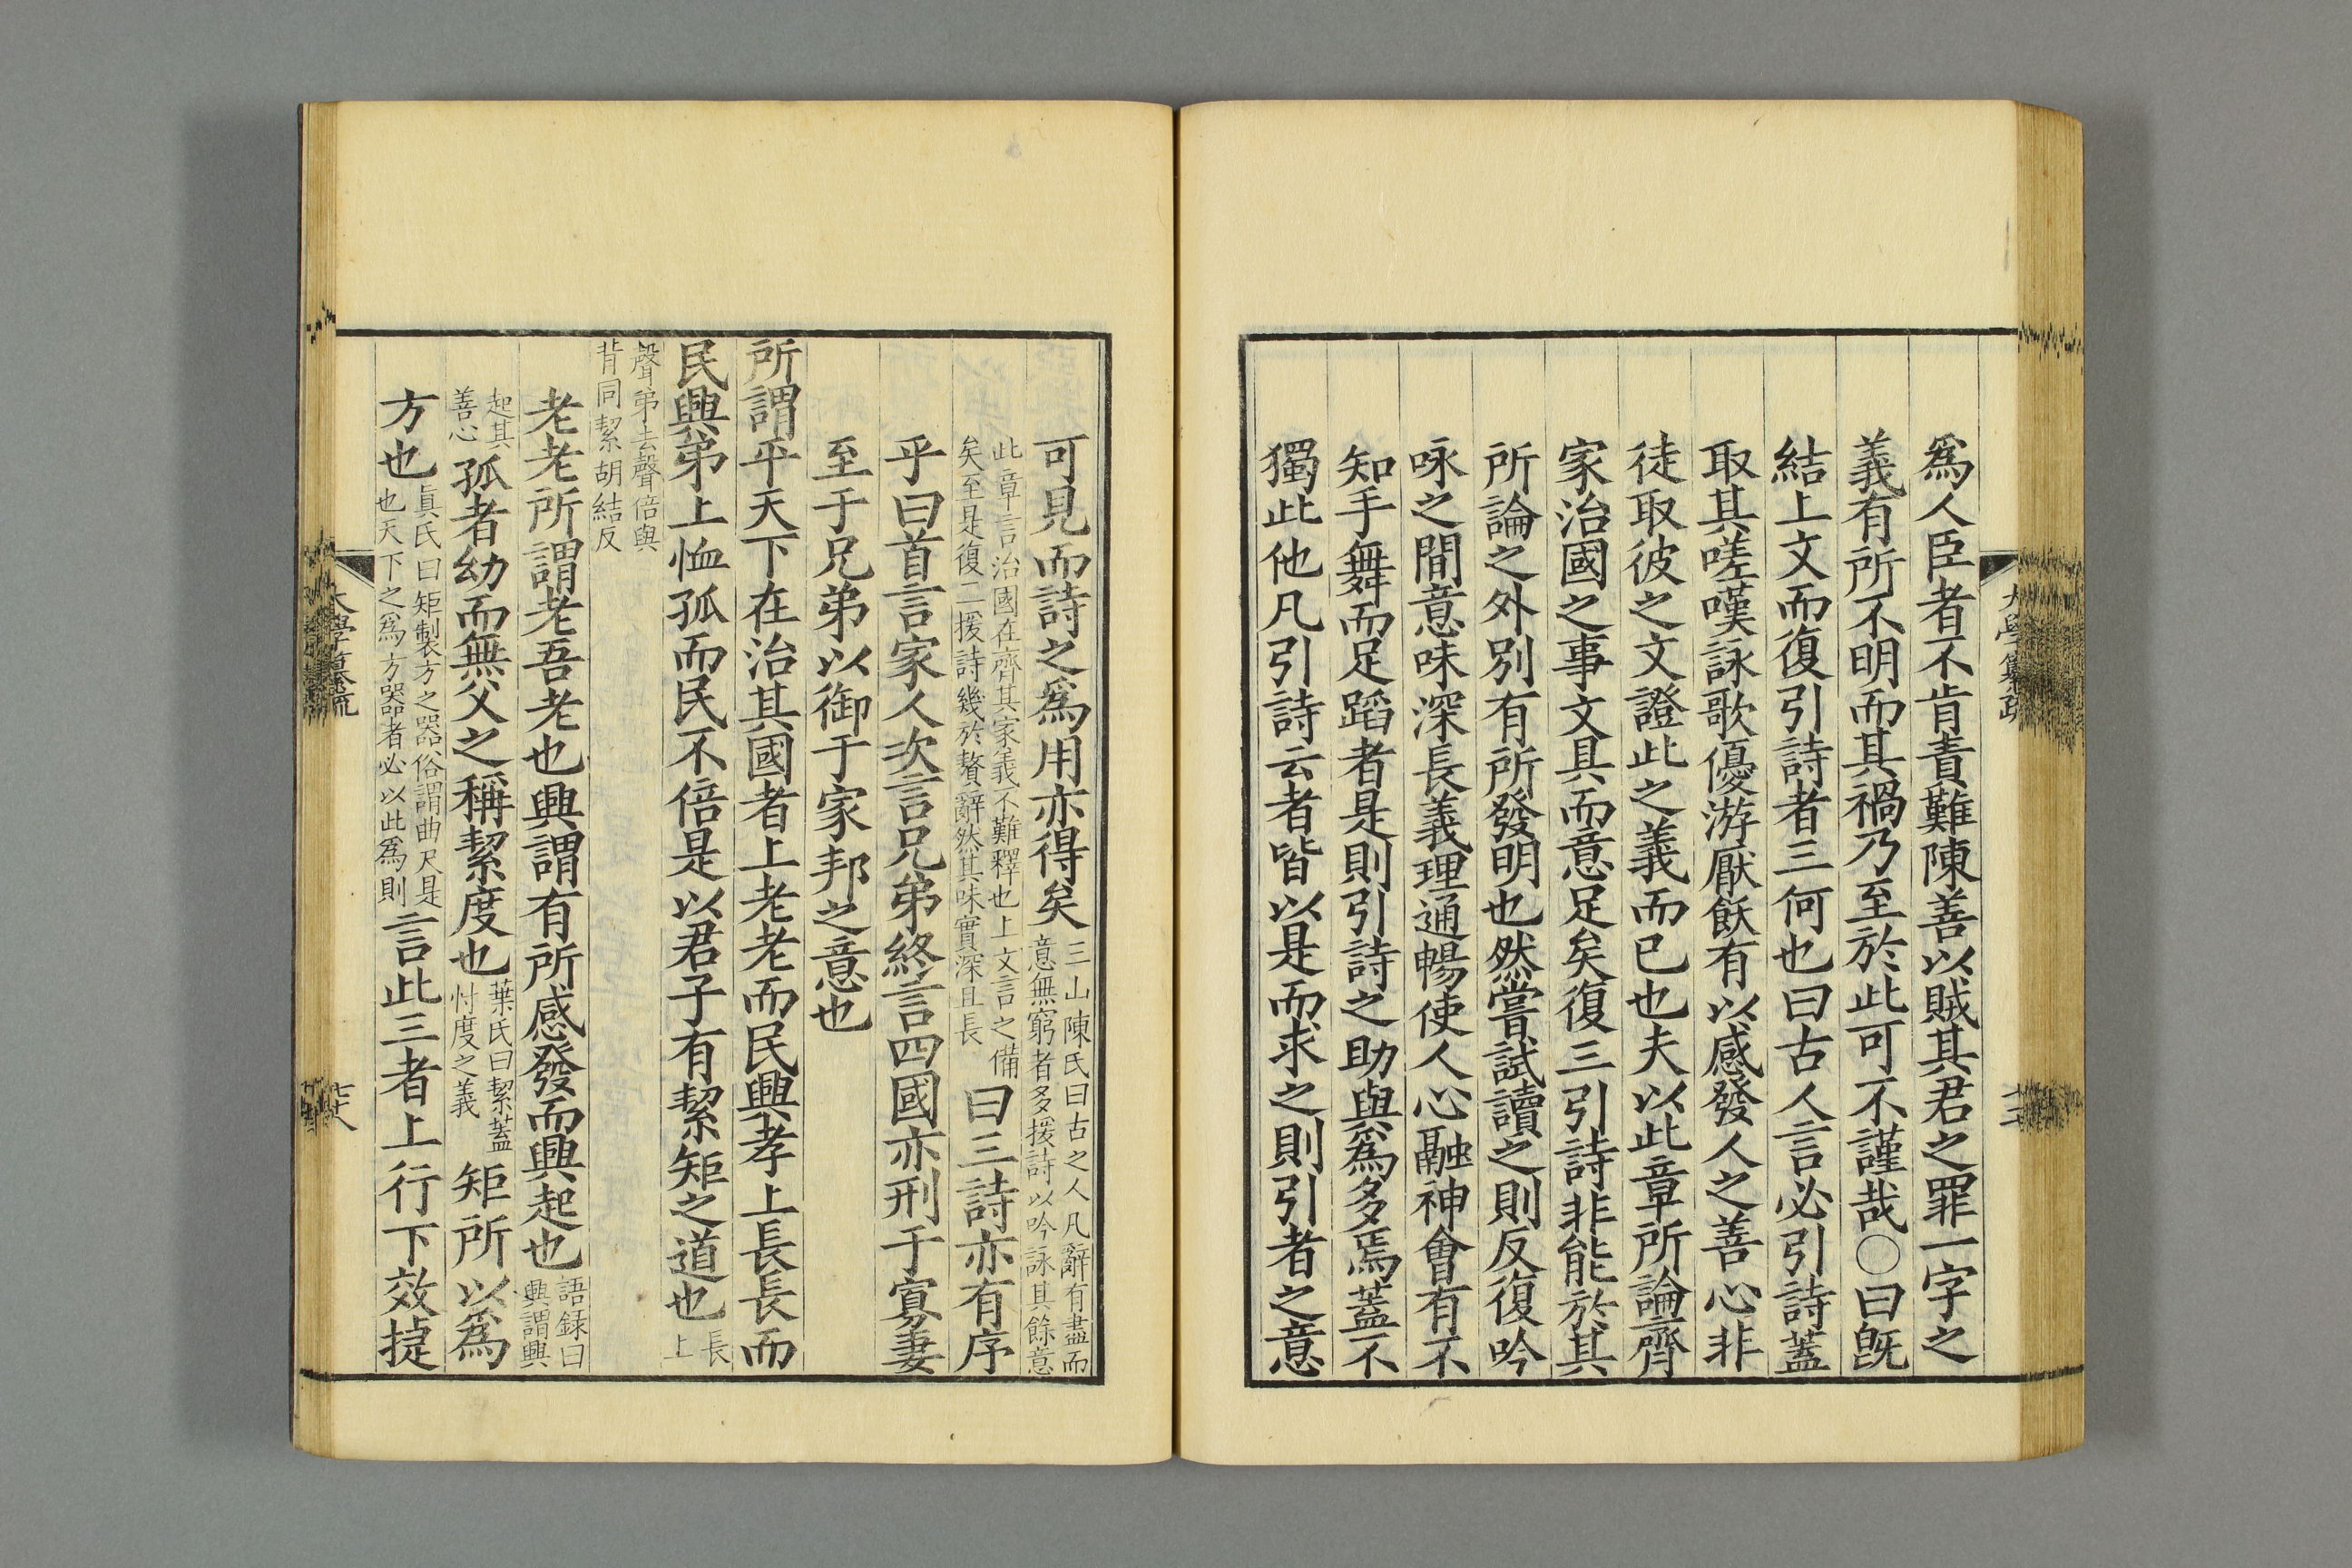 爲人臣者不肯責難陳善以賊其君之罪一字之
義有所不明而其禍乃至於此可不謹哉○曰旣
結上文而復引詩者三何也曰古人言必引詩蓋
取其嗟嘆詠歌優游厭飫有以感發人之善心非
徒取彼之文證此之義而已也夫以此章所論齊
家治國之事文具而意足矣復三引詩非能於其
所論之外別有所發明也然嘗試讀之則反復吟
咏之間意味深長義理通暢使人心融神會有不
知手舞而足蹈者是則引詩之助與爲多焉蓋不
獨此他凡引詩云者皆以是而求之則引者之意
可見而詩之爲用亦得矣三山陳氏曰古之人凡辭有盡而
意無窮者多援詩以吟詠其餘意
此章言治國在齊其家義不難釋也上文言之備
矣至是復三援詩幾於贅辭然其味實深且長曰三詩亦有序
乎曰首言家人次言兄弟終言四國亦刑于寡妻
至于兄弟以御于家邦之意也
所謂平天下在治其國者上老老而民興孝上長長而
民興弟上恤孤而民不倍是以君子有絜矩之道也長
上
聲弟去聲倍與
背同絜胡結反
老老所謂老吾老也興謂有所感發而興起也語録曰
興謂興
起其
善心孤者幼而無父之稱絜度也葉氏曰絜蓋
忖度之義矩所以爲
方也眞氏曰矩製方之器俗謂曲尺是
也天下之爲方器者必以此爲則言此三者上行下效捷
大學纂疏